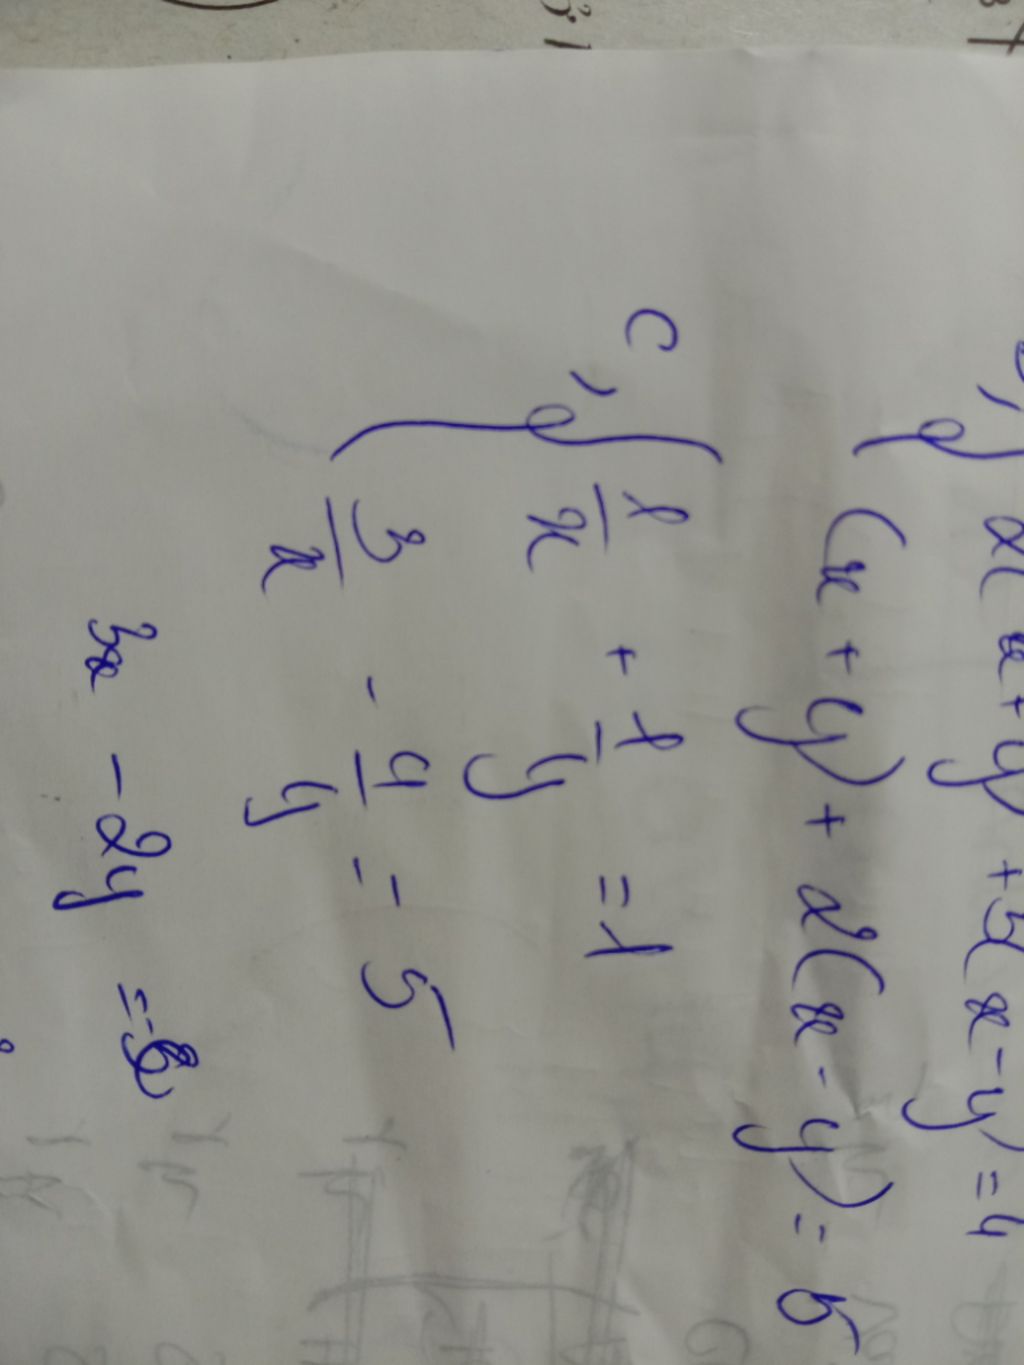 b, { 2(x+y) + 3(x-y) = 4
(x+y) + 2(x-y) = 5
c, { 1/x + 1/y = 1
3/x - 4/y = 5
3x - 2y =